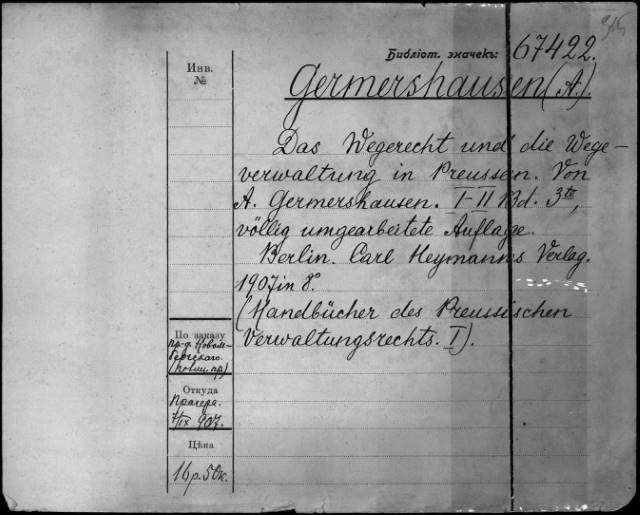 Библіот. значекъ: 67422.
Инв.
№
Germershausen (A.).
Das Wegerecht und die Wege-
verwaltung in Preussen. Von
A. Germershausen. I-II Bd. 3te,
völlig umgearbeitete Auflage.
Berlin. Carl Heymanns Verlag.
1907 in 8°.
(Handbücher des Preussischen
Verwaltungsrechts. I).
По заказу
пр-ф.
Откуда
Прагера.
7/IX 907.
Цѣна
16 р. 50 к.